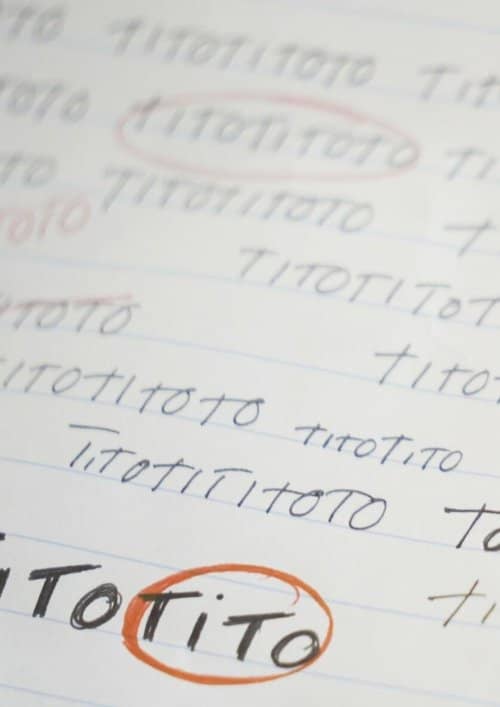 TO TITOTITOTO TIT
TOTO TITOTITOTO TI
TO TITOTITOTO T
TOTO TITOTITOT
TOTO TITO
ITOTITOTO TITOTITO
TITOTITITOTO TO
iTOTiTO TI